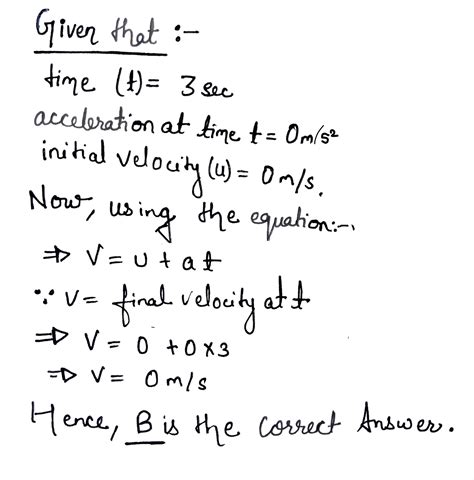 Given that :-
time (t) = 3 sec
acceleration at time t = 0 m/s²
initial velocity (u) = 0 m/s.
Now, using the equation:-
⇒ V = u + at
∵ V = final velocity at t
⇒ V = 0 + 0×3
⇒ V = 0 m/s
Hence, B is the correct Answer.